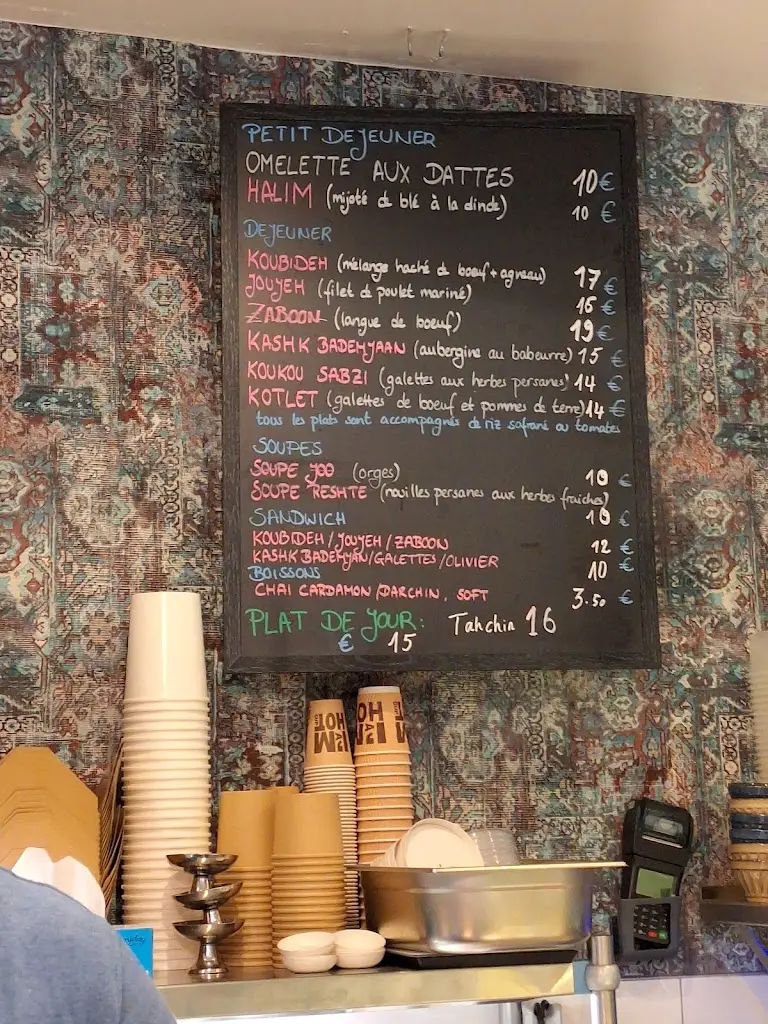 PETIT DEJEUNER
OMELETTE AUX DATTES 10€
HALIM (mijoté de blé à la dinde) 10 €
DEJEUNER
KOUBIDEH (mélange haché de boeuf + agneau) 17 €
JOUJEH (filet de poulet mariné) 16 €
ZABOON (langue de boeuf) 19 €
KASHK BADEMJAAN (aubergine au babeurre) 15 €
KOUKOU SABZI (galettes aux herbes persanes) 14 €
KOTLET (galettes de boeuf et pommes de terre) 14 €
tous les plats sont accompagnés de riz safrané ou tomates
SOUPES
SOUPE JOO (orges) 10 €
SOUPE RESHTE (nouilles persanes aux herbes fraiches)
SANDWICH 10 €
KOUBIDEH / JOUJEH / ZABOON 12 €
KASHK BADEMJAN/GALETTES/OLIVIER
BOISSONS 10 €
CHAI CARDAMON /DARCHIN, SOFT 3.50 €
PLAT DE JOUR: Tahchin 16
€ 15
I'M
HOT